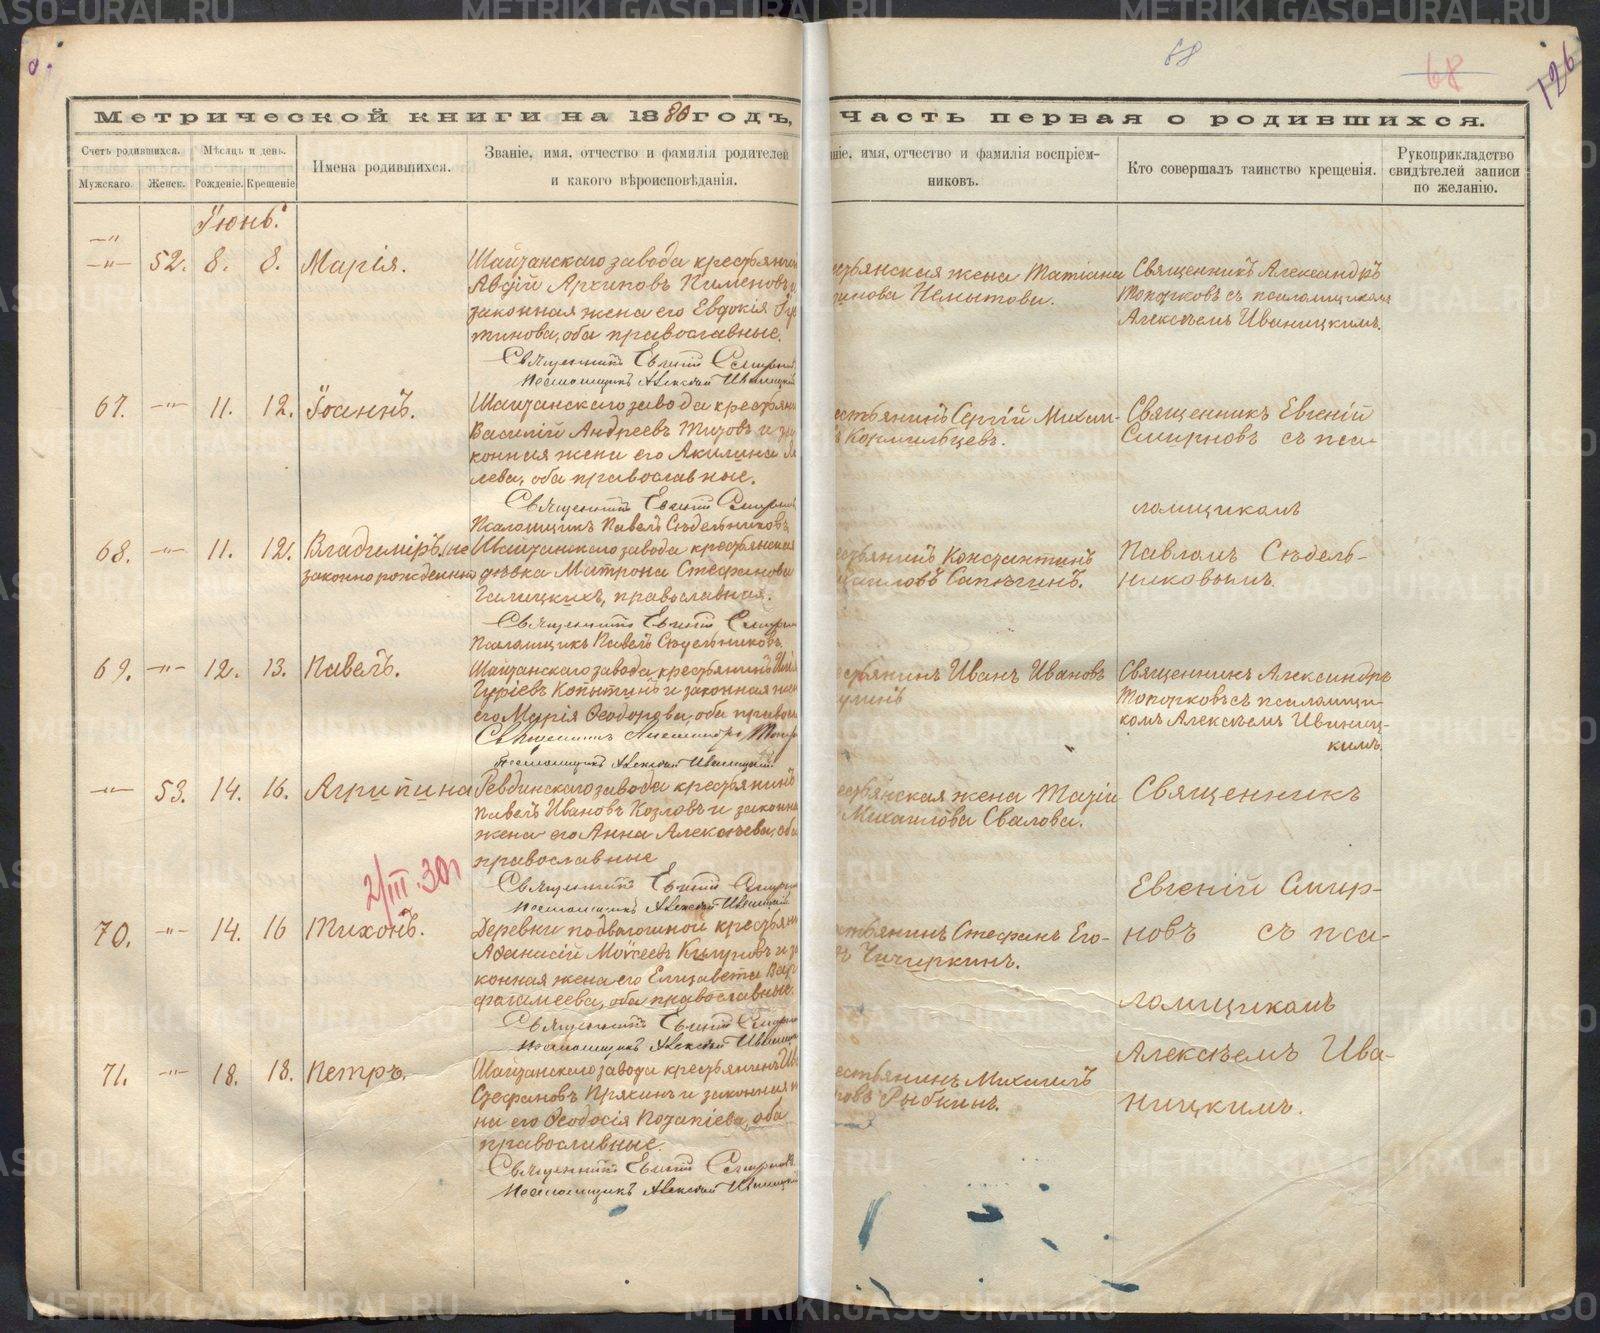 68
68
126
Метрической книги на 1880 годъ,
Часть первая о родившихся.
Счетъ родившихся.
Мужскаго.
Женск.
Мѣсяцъ и день.
Рожденіе.
Крещеніе
Имена родившихся.
Званіе, имя, отчество и фамилія родителей
и какого вѣроисповѣданія.
ніе, имя, отчество и фамилія воспріем-
никовъ.
Кто совершалъ таинство крещенія.
Рукоприкладство
свидѣтелей записи
по желанію.
Іюнь.
52. 8. 8. Марія.
Шайтанскаго завода крестьянин
Авдій Архиповъ Пименовъ и
законная жена его Евдокія
тинова, оба православные.
Священникъ Евгеній Смирнов
Псаломщикъ Алексѣй Иваницкій
стьянская жена Татіана
Немытова.
Священникъ Александръ
Топорковъ съ псаломщикомъ
Алексѣемъ Иваницкимъ.
67. 11. 12. Іоаннъ.
Шайтанскаго завода крестьян
Василій Андреевъ Тизовъ и за
конная жена его Акилина
лева, оба православные.
Священникъ Евгеній Смирнов
Псаломщикъ Павелъ Сѣдельниковъ
стьянинъ Сергій Михаи-
ъ Кормильцевъ.
Священникъ Евгеній
Смирновъ съ пса-
ломщикомъ
Павломъ Сѣдель-
никовымъ
68. 11. 12. Владиміръ (не
законнорожденный
Шайтанскаго завода крестьянская
дѣвка Матрона Стефанова
Галицкихъ, православная.
Священникъ Евгеній Смирнов
Псаломщикъ Павелъ Сѣдельниковъ
стьянинъ Константинъ
Сапѣгинъ.
69. 12. 13. Павелъ.
Шайтанскаго завода крестьянинъ
Гуріевъ Копытинъ и законная жен
его Марія Ѳеодорова, оба правос
Священникъ Александръ Топор
Псаломщикъ Алексѣй Иваницкій
стьянинъ Иванъ Ивановъ
Священникъ Александръ
Топорковъ съ псаломщи-
комъ Алексѣемъ Иваниц-
кимъ.
53. 14. 16. Агрипина
Ревдинскаго завода крестьянинъ
Павелъ Ивановъ Козловъ и законна
жена его Анна Алексѣева, оба
православные
Священникъ Евгеній Смирнов
Псаломщикъ Алексѣй Иваницкій
стьянская жена Марія
Михаилова Свалова.
Священникъ
Евгеній Смир-
новъ съ пса-
ломщикомъ
Алексѣемъ Ива-
ницкимъ.
2/III.30г
70. 14. 16 Тихонъ.
Деревни Подволошной крестьян
Аѳанасій Моѵсеевъ и за
конная жена его Елизавета Вар
фоломеева, оба православные.
Священникъ Евгеній Смирнов
Псаломщикъ Алексѣй Иваницк
стьянинъ Стефанъ Его-
ъ Чичиркинъ.
71. 18. 18. Петръ.
Шайтанскаго завода крестьянинъ Ив
Стефановъ Пряхинъ и законная же
на его Ѳеодосія Потапіева, оба
православные.
Священникъ Евгеній Смирновъ
Псаломщикъ Алексѣй Иваницкій
естьянинъ Михаилъ
ровъ Рыбкинъ.
METRIKI.GASO-URAL.RU